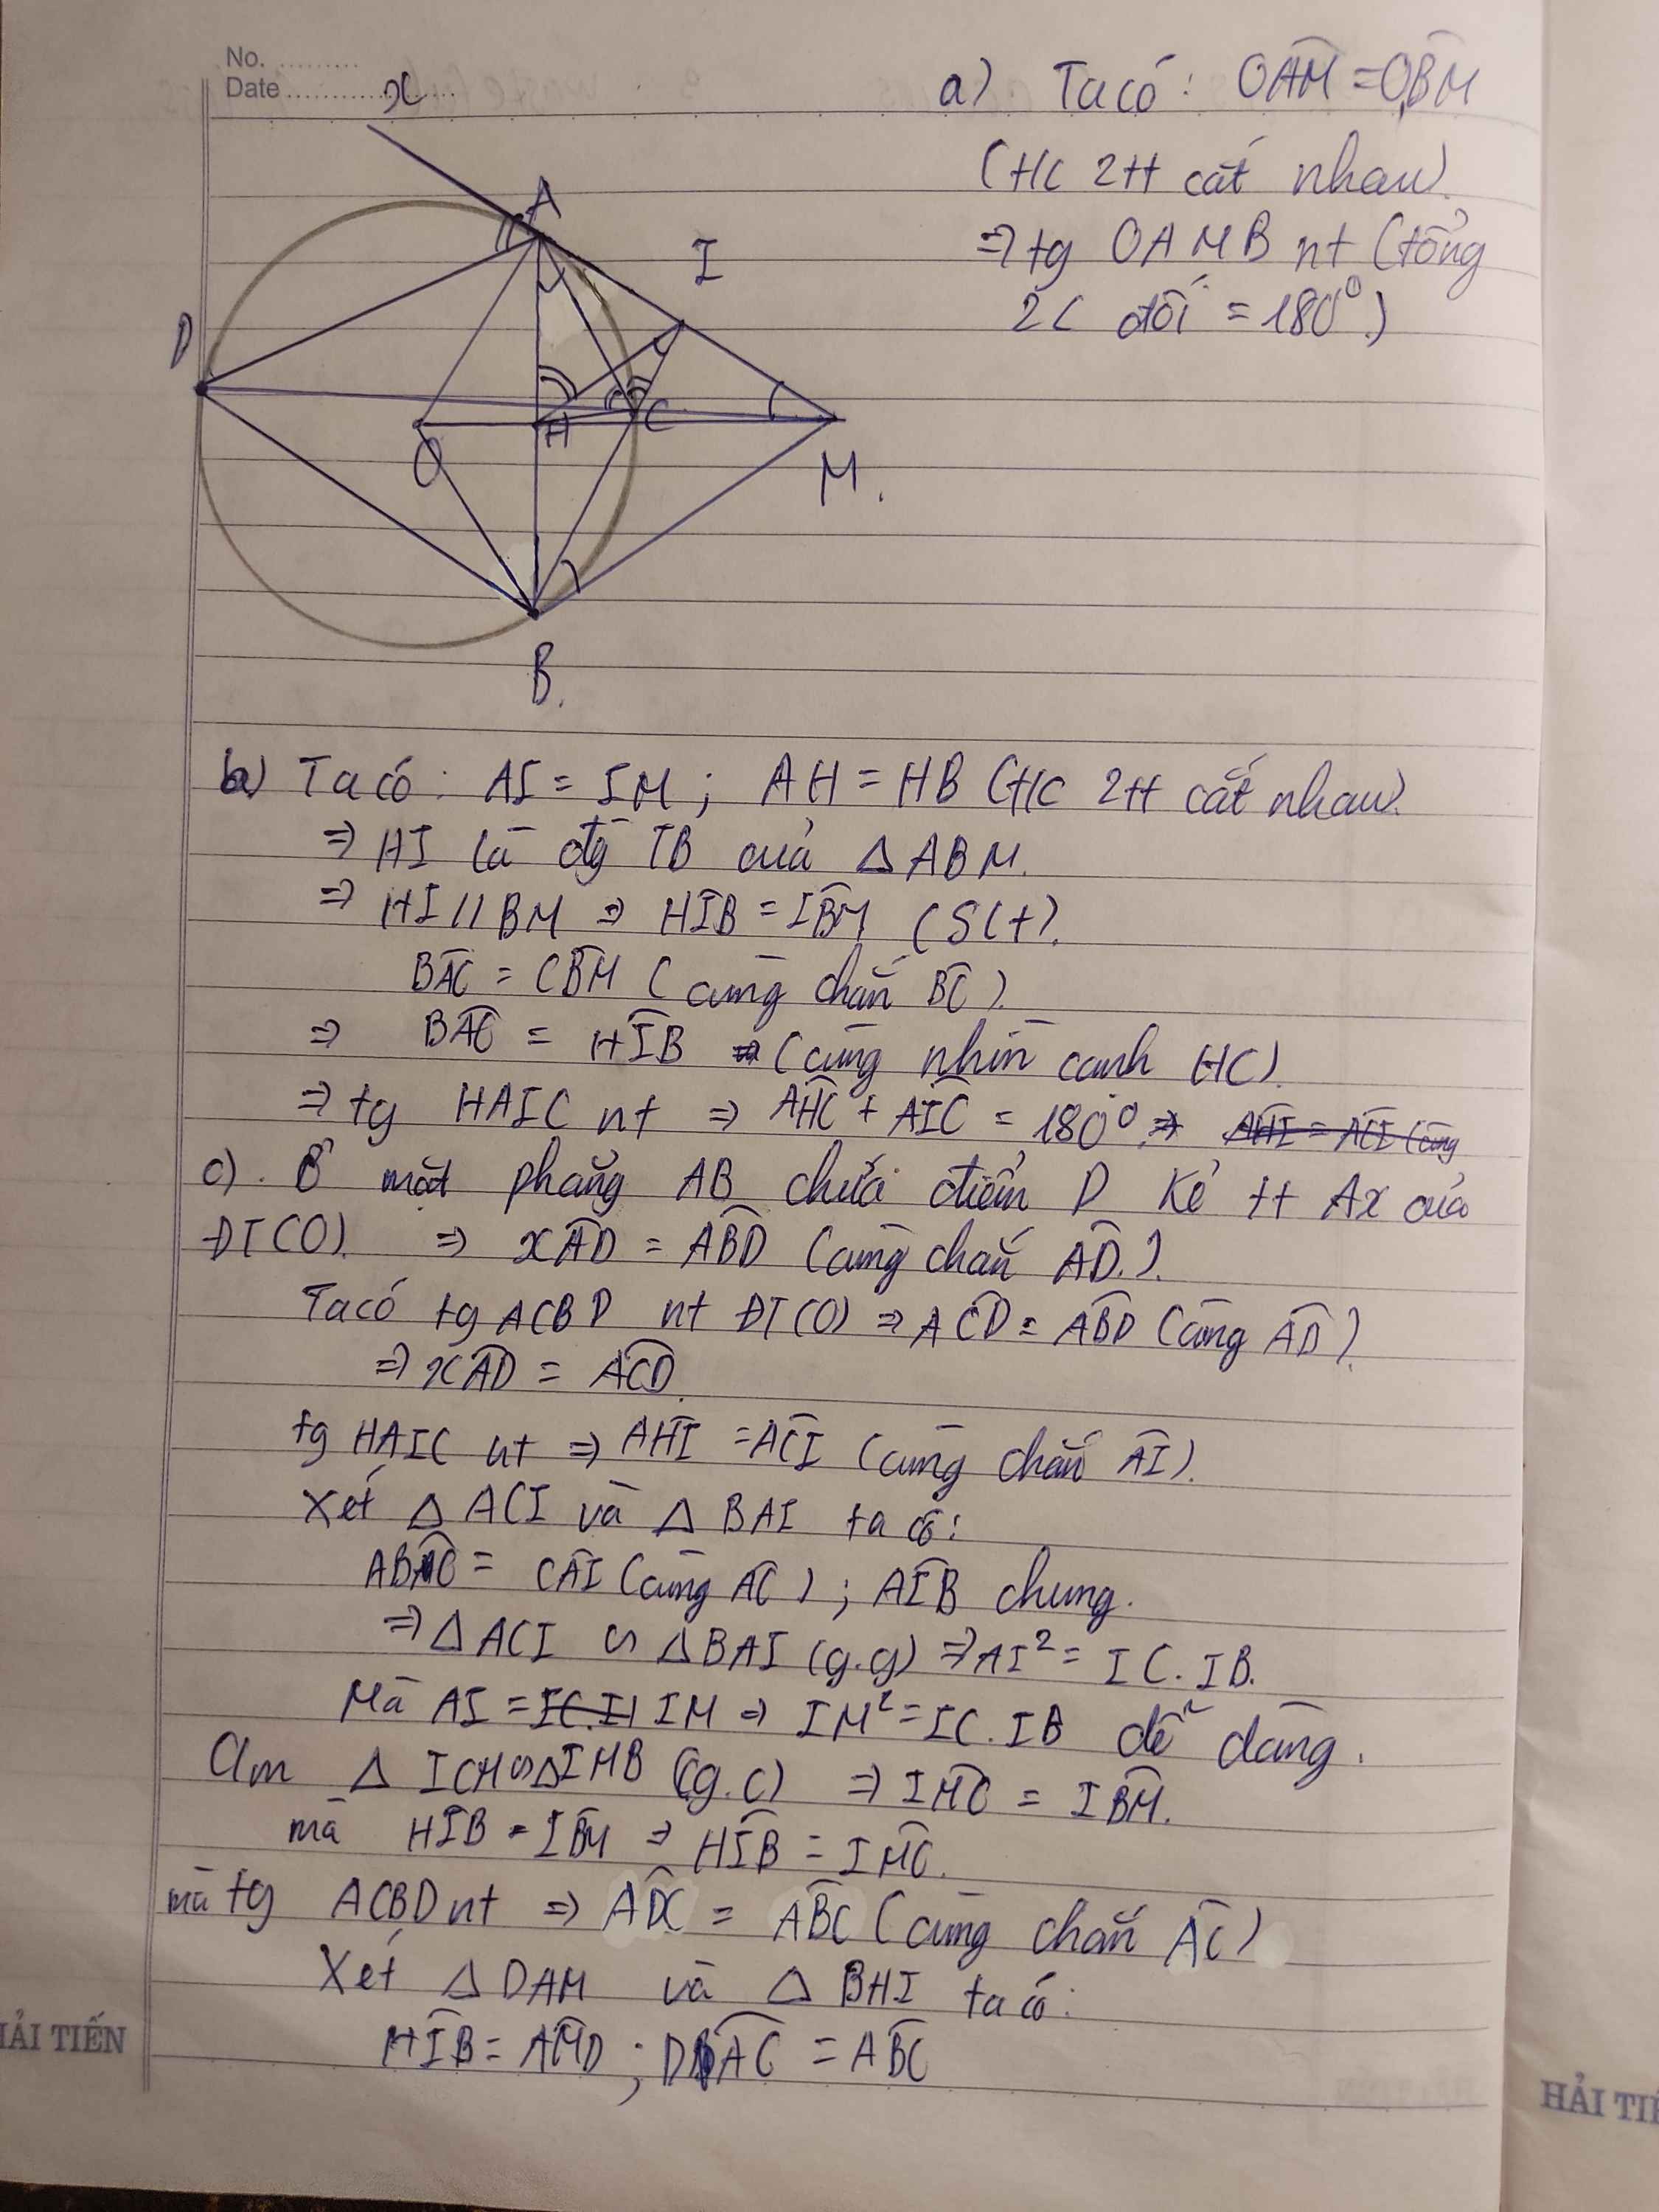 No. .........
Date ........................
x
a) Ta có: OAM = OBM
(t/c 2tt cắt nhau)
=> tg OAMB nt (tổng
2 ( đối = 180°)
A
I
D
O
H
C
M.
B.
b) Ta có: AI = IM; AH = HB (t/c 2tt cắt nhau).
=> HI là đg TB của △ABM.
=> HI // BM => HIB = IBM (SLT).
BAC = CBM (cùng chắn BC).
=> BAC = HIB (cùng nhìn cạnh HC)
=> tg HAIC nt => AHC + AIC = 180° => AHI = ACI (cùng
c). Ở mặt phẳng AB chứa điểm D kẻ tt Ax của
ĐT(O). => xAD = ABD (cùng chắn AD.).
Ta có tg ACBD nt ĐT(O) => ACD = ABD (cùng AD).
=> xAD = ACD.
tg HAIC nt => AHI = ACI (cùng chắn AI).
Xét △ ACI và △ BAI ta có:
ABC = CAI (cùng AC); AIB chung.
=> △ ACI ∽ △BAI (g.g) => AI² = IC.IB.
Mà AI = IM => IM² = IC.IB dễ dàng.
Cm △ ICM ∽ △IMB (cg.c) => IMC = IBM.
mà HIB = IBM => HIB = IMC.
mà tg ACBD nt => ADC = ABC (cùng chắn AC)
Xét △DAM và △ BHI ta có:
HIB = AMD; DAC = ABC
HẢI TIẾN
HẢI TIẾ